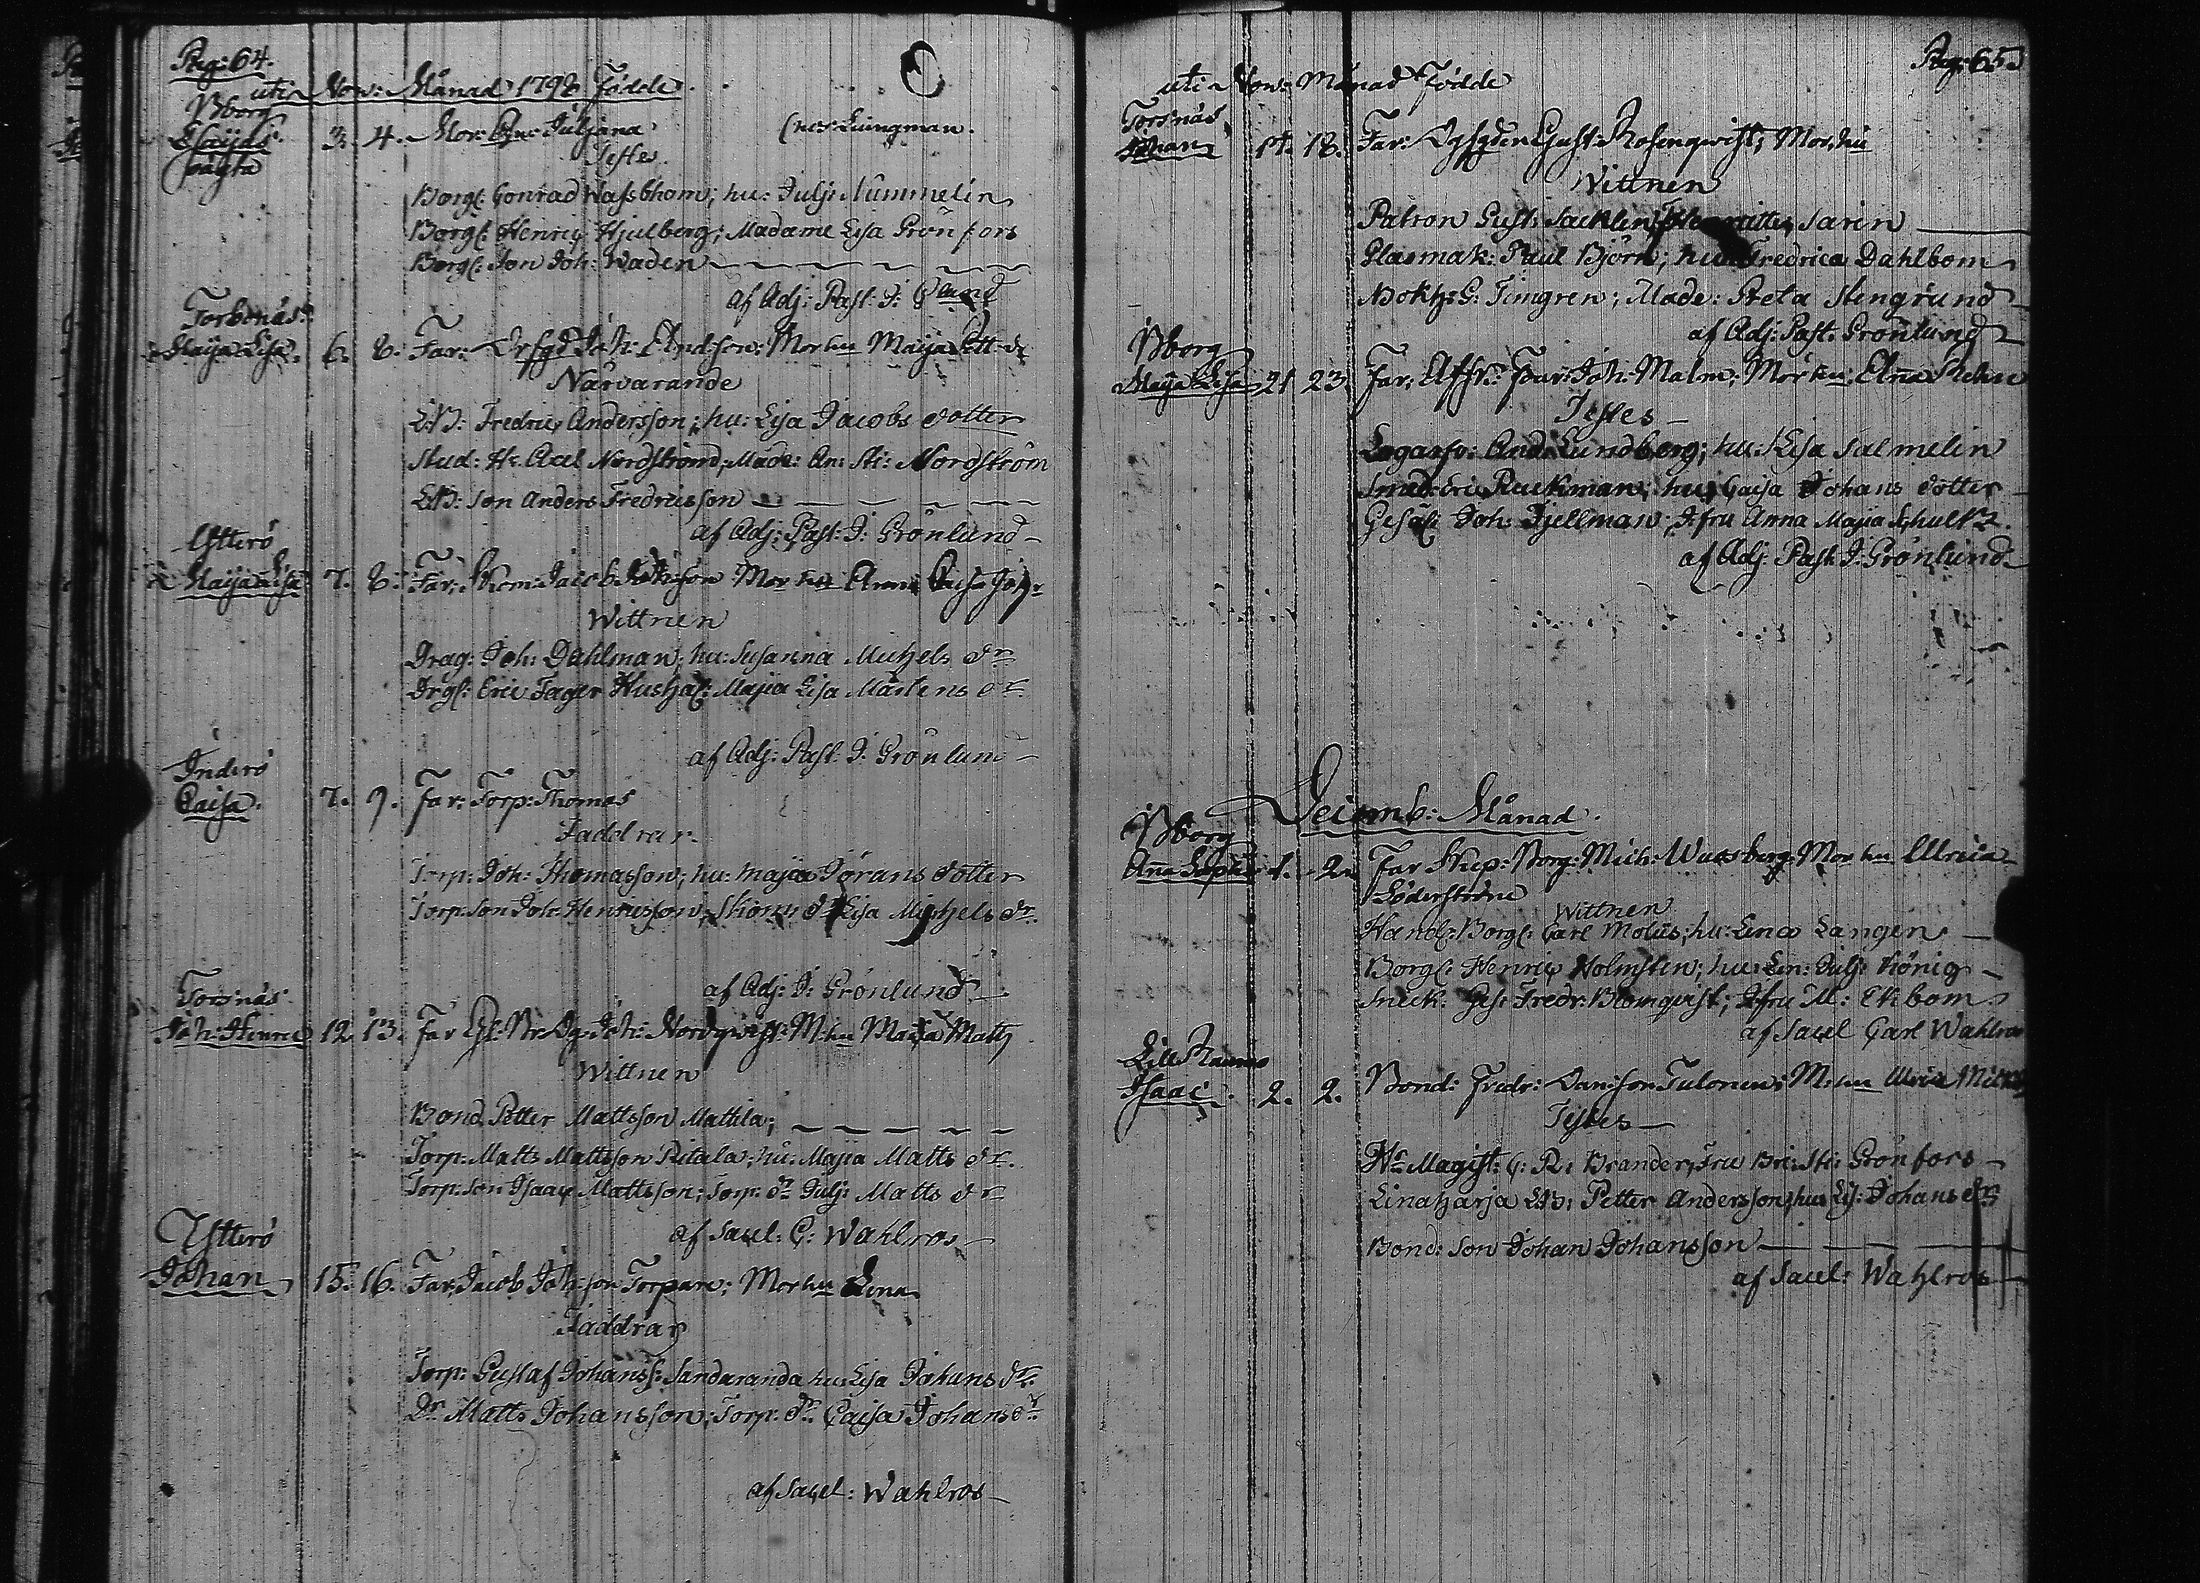 Pag: 64.
uti Nov: Månad 1798 Födde
Bborg
3. 4. Mor: Juljana (hos Liungman.
Testes
Borg: Conrad Wassbhom; hu: Julj: Nummelin
Borg: Henric Hjulberg; Madame Lisa Grönfors
Borg: Son Joh: Waden
af Adj: Past: J:
Torbonäs
Maija Lisa. 6. 8. Far: Joh: Andson: Mor hu Maija
Närvarande
LB: Fredric Andersson; hu: Lisa Jacobs dotter
Stud: Hr Axel Nordström; Made: An: Sti: Nordström
LB: son Anders Fredricsson
af Adj: Past: J: Grönlund
Ytterö
Maija Lisa 7. 8. Far: Jacob Mor hu Anna Caisa
Wittnen
Drag: Joh: Dahlman; hu: Susanna Michels dr
Drgs: Eric Fager Hushåls: Majia Lisa Mårtens dr
af Adj: Past: J: Grönlund
Inderö
Caisa. 7. 9. Far: Torp: Thomas
Faddrar
Torp: Joh: Thomasson; hu: Majia Jörans dotter
Torp: son Joh: Henricsson; dr Lisa Michels dr
af Adj: J: Grönlund
Torsnäs
Joh: Henric 12. 13. Far Joh: Nordqvist: M: hu Maija Matts
Wittnen
Bond. Petter Mattsson Mattila;
Torp: Matts Mattsson Ritala; hu: Majia Matts dr.
Torp: son Isaac Mattsson; Torp: dr Julj: Matts dr
af Sacel: C: Wahlros
Ytterö
Johan 15. 16. Far, Jacob Joh: son Torpare; Mor hu Lena
Faddrar
Torp: Gustaf Johanss: Sandaranda hu: Lisa Johans dr
Dr Matts Johansson; Torp: dr Caisa Johans dr
af Sacel: Wahlros
Pag: 65
uti Nov: Månad Födde
Torsnäs
Johan 17. 18. Far: Gust: Rosenqwist; Mor, hu
Wittnen
Patron Gust: Sacklen; Sarin
Glasmak: Paul Björn; hu: Fredrica Dahlbom
Bokh: G: Timgren; Made: Greta Stengrund
af Adj: Past: Grönlund
Bborg
Maija Lisa 21 23. Far, Joh: Malm; Mor hu Anna
Testes
And: Lundberg; hu: Lisa Salmelin
Smed: Eric Ruckman; hu; Caisa Johans dotter
Gesäl: Joh: Fjellman; Jfru Anna Majia Schultz.
af Adj: Past: J: Grönlund
Decemb: Månad.
Bborg
Anna Sophia 1. 2. Far Skep: Borg: Mich: Mor hu Ulrica
Söderström
Wittnen
Handl: Borg: Carl Moliis; hu: Lena Langen
Borg: Henric Holmsten; hu: Len: Julj: König
Snick: Ges: Fredr: Blomqvist; Jfru M: Ekbom
af Sacel Carl Wahlros
Lill Raumo
Isaac. 2. 2. Bond: Fredr: Danison Tulonen; M: hu Ulrica
Testes
Hr Magist: C: R: Brander; Fru Bri: Sti: Grönfors
Linaharja LB: Petter Andersson; hu: Lis: Johans dr
Bond: Son Johan Johansson
af Sacel: Wahlros